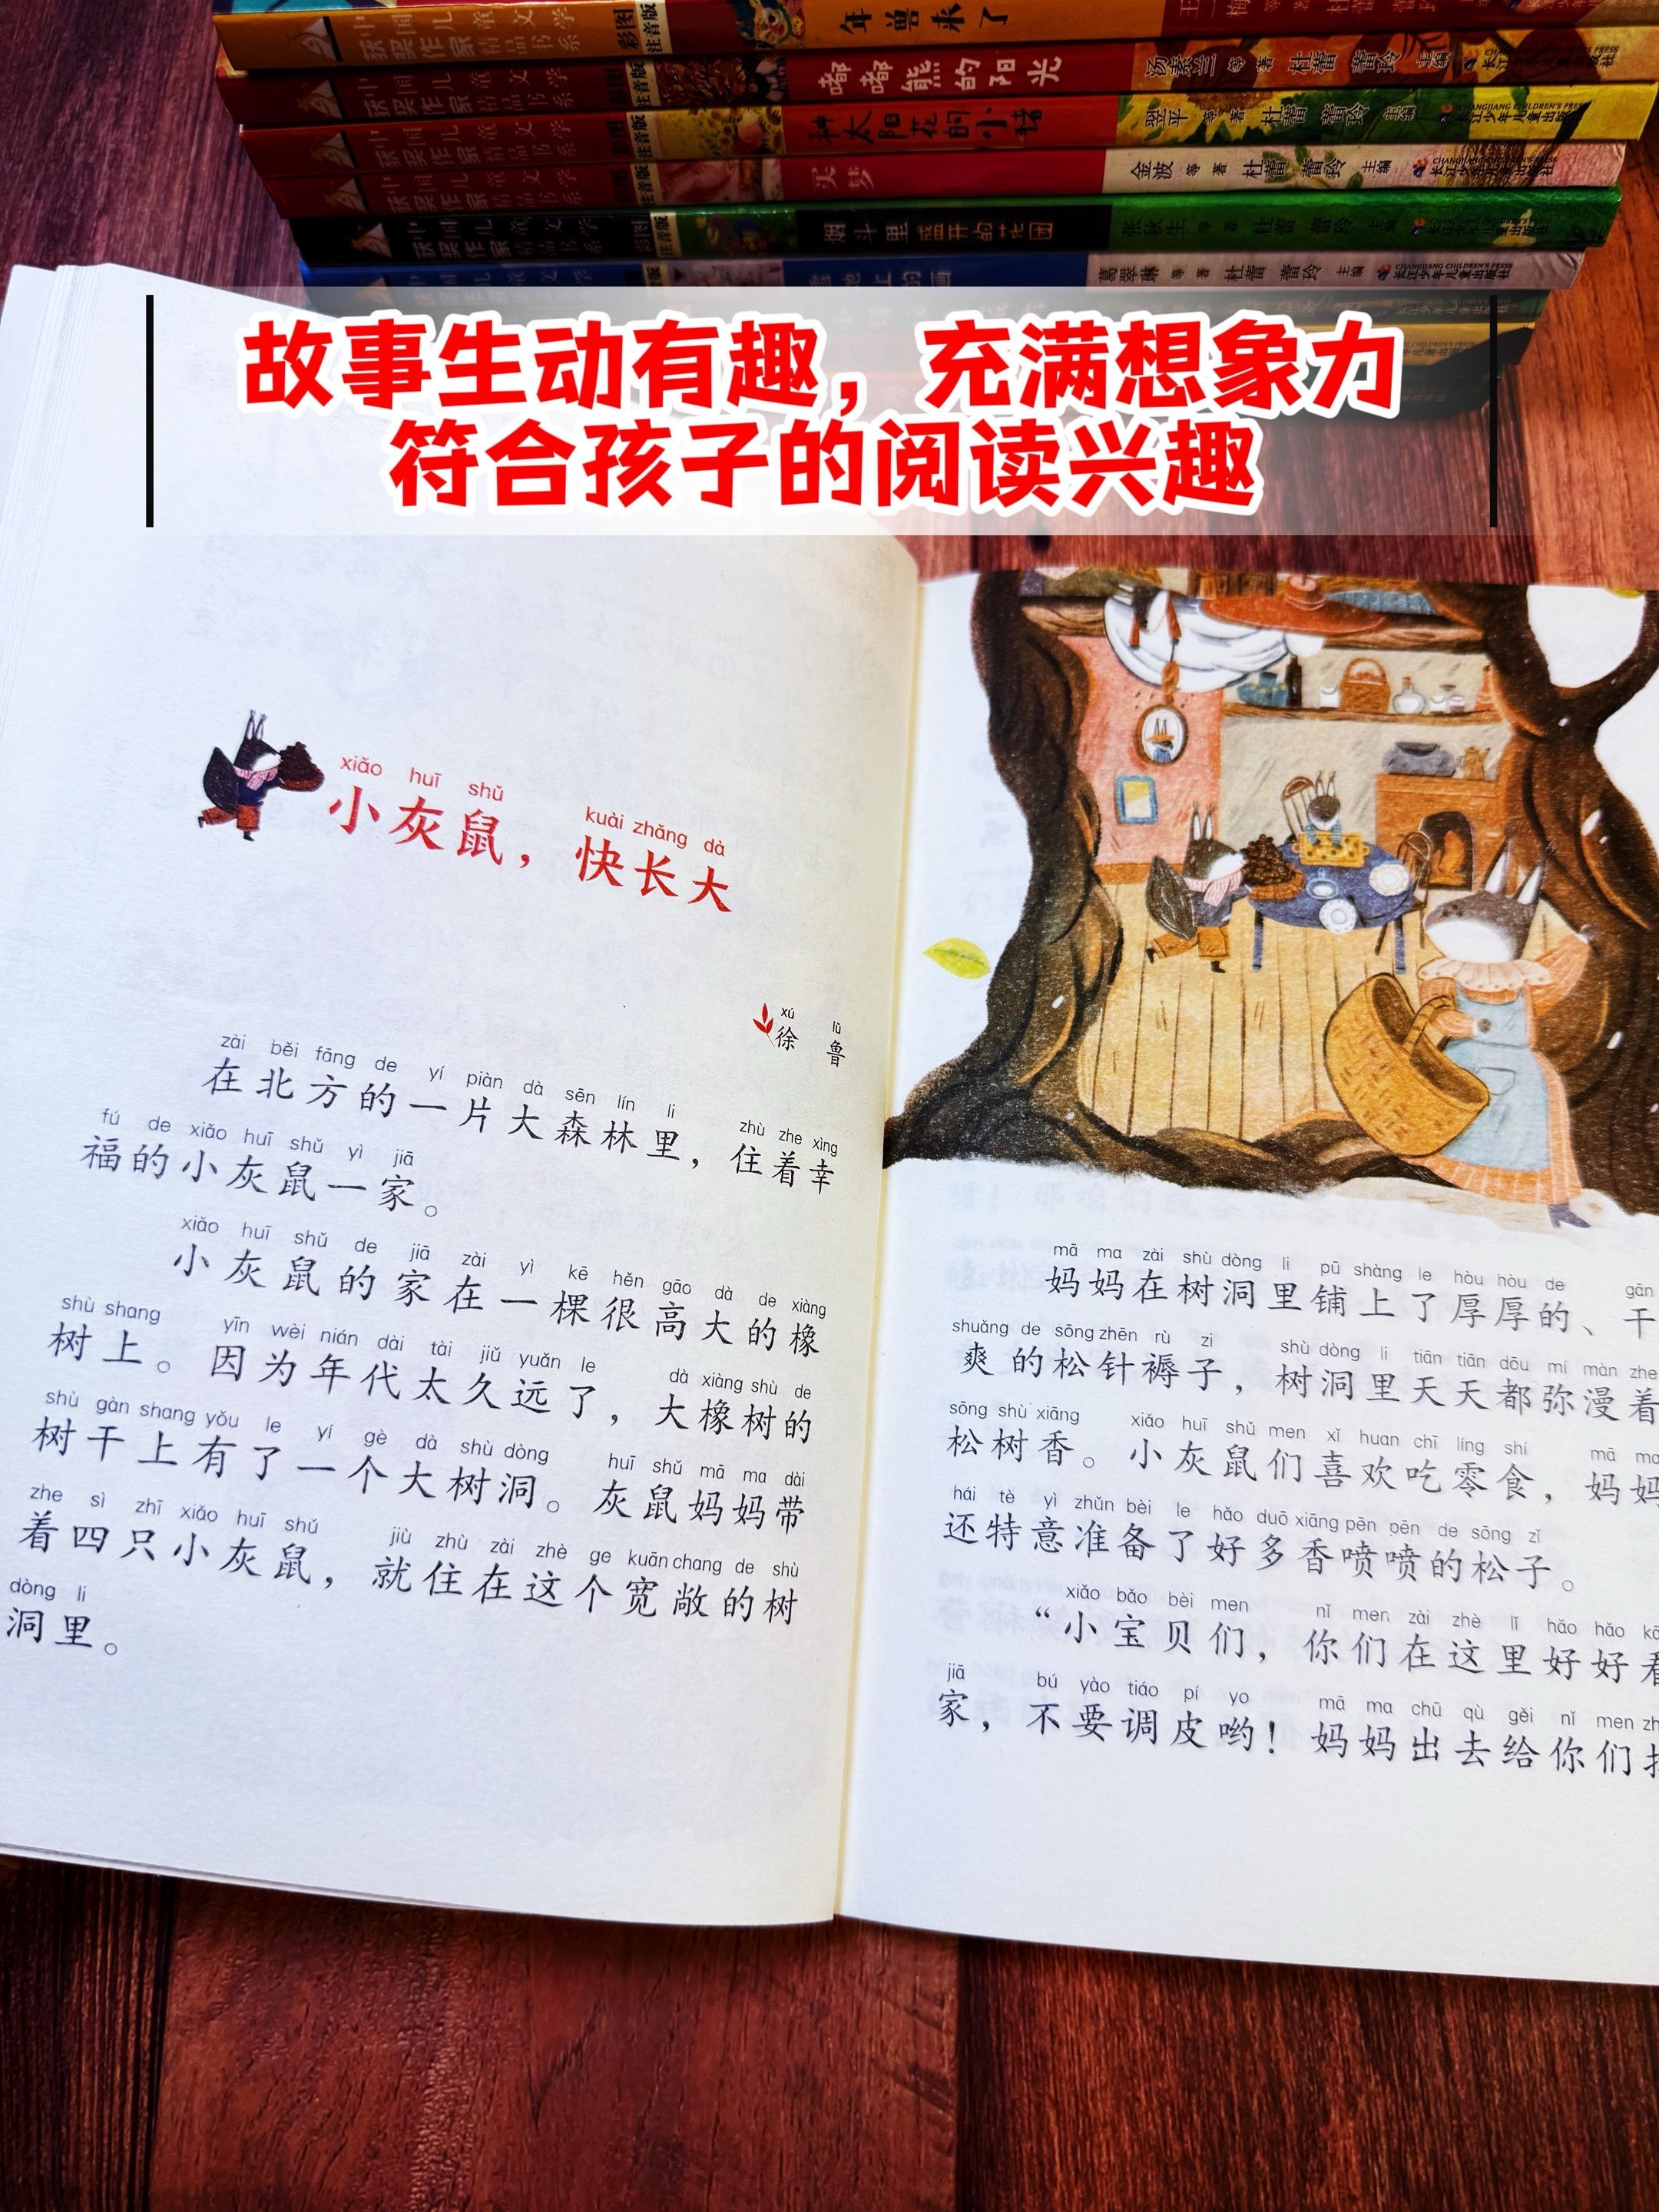 年兽来了
中国儿童文学
获奖作家精品书系
彩图
注音版
嘟嘟熊的阳光
汤素兰 等 著 杜蕾 蕾玲 主编
CHANGJIANG CHILDREN'S PRESS
长江少年儿童出版社
中国儿童文学
获奖作家精品书系
注音版
种太阳花的小猪
翌平 等 著 杜蕾 蕾玲 主编
CHANGJIANG CHILDREN'S PRESS
长江少年儿童出版社
中国儿童文学
获奖作家精品书系
注音版
买梦
金波 等 著 杜蕾 蕾玲 主编
CHANGJIANG CHILDREN'S PRESS
长江少年儿童出版社
中国儿童文学
获奖作家精品书系
彩图
注音版
烟斗里盛开的花园
张秋生 等 著 杜蕾 蕾玲 主编
长江少年儿童出版社
雪地上的画
葛翠琳 等 著 杜蕾 蕾玲 主编
CHANGJIANG CHILDREN'S PRESS
长江少年儿童出版社
故事生动有趣，充满想象力
符合孩子的阅读兴趣
xiǎo huī shǔ kuài zhǎng dà
小灰鼠，快长大
xú lǔ
徐鲁
zài běi fāng de yí piàn dà sēn lín li zhù zhe xìng
在北方的一片大森林里，住着幸
fú de xiǎo huī shǔ yì jiā
福的小灰鼠一家。
xiǎo huī shǔ de jiā zài yì kē hěn gāo dà de xiàng
小灰鼠的家在一棵很高大的橡
shù shang yīn wèi nián dài tài jiǔ yuǎn le dà xiàng shù de
树上。因为年代太久远了，大橡树的
shù gàn shang yǒu le yí gè dà shù dòng huī shǔ mā ma dài
树干上有了一个大树洞。灰鼠妈妈带
zhe sì zhī xiǎo huī shǔ jiù zhù zài zhè ge kuān chang de shù
着四只小灰鼠，就住在这个宽敞的树
dòng li
洞里。
mā ma zài shù dòng li pū shàng le hòu hòu de gān
妈妈在树洞里铺上了厚厚的、干
shuǎng de sōng zhēn rù zi shù dòng li tiān tiān dōu mí màn zhe
爽的松针褥子，树洞里天天都弥漫着
sōng shù xiāng xiǎo huī shǔ men xǐ huan chī líng shí mā ma
松树香。小灰鼠们喜欢吃零食，妈妈
hái tè yì zhǔn bèi le hǎo duō xiāng pēn pēn de sōng zǐ
还特意准备了好多香喷喷的松子。
xiǎo bǎo bèi men nǐ men zài zhè lǐ hǎo hǎo
“小宝贝们，你们在这里好好看
jiā bú yào tiáo pí yo mā ma chū qù gěi nǐ men
家，不要调皮哟！妈妈出去给你们